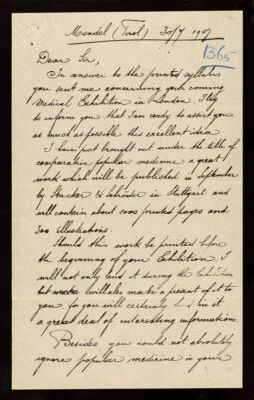 Mendel (Tirol) 30/7 1907
1365
Dear Sir,
In answer to the printed syllabus
you sent me concerning your coming
Medical Exhibition in London. I beg
to inform you that I am ready to assist you
as much as possible this excellent idea
I have just brought out under the title of
comparative popular medicine a great
work which will be published in September
by Strecker & Schröder in Stuttgart and
will contain about 1000 printed pages and
300 illustrations.
Should this work be printed before
the beginning of your Exhibition I
will not only lend it during the Exhibition
but I will also make a present of it to
you for you will certainly find in it
a great deal of interesting informations.
Besides you would not absolutely
ignore popular medicine in your